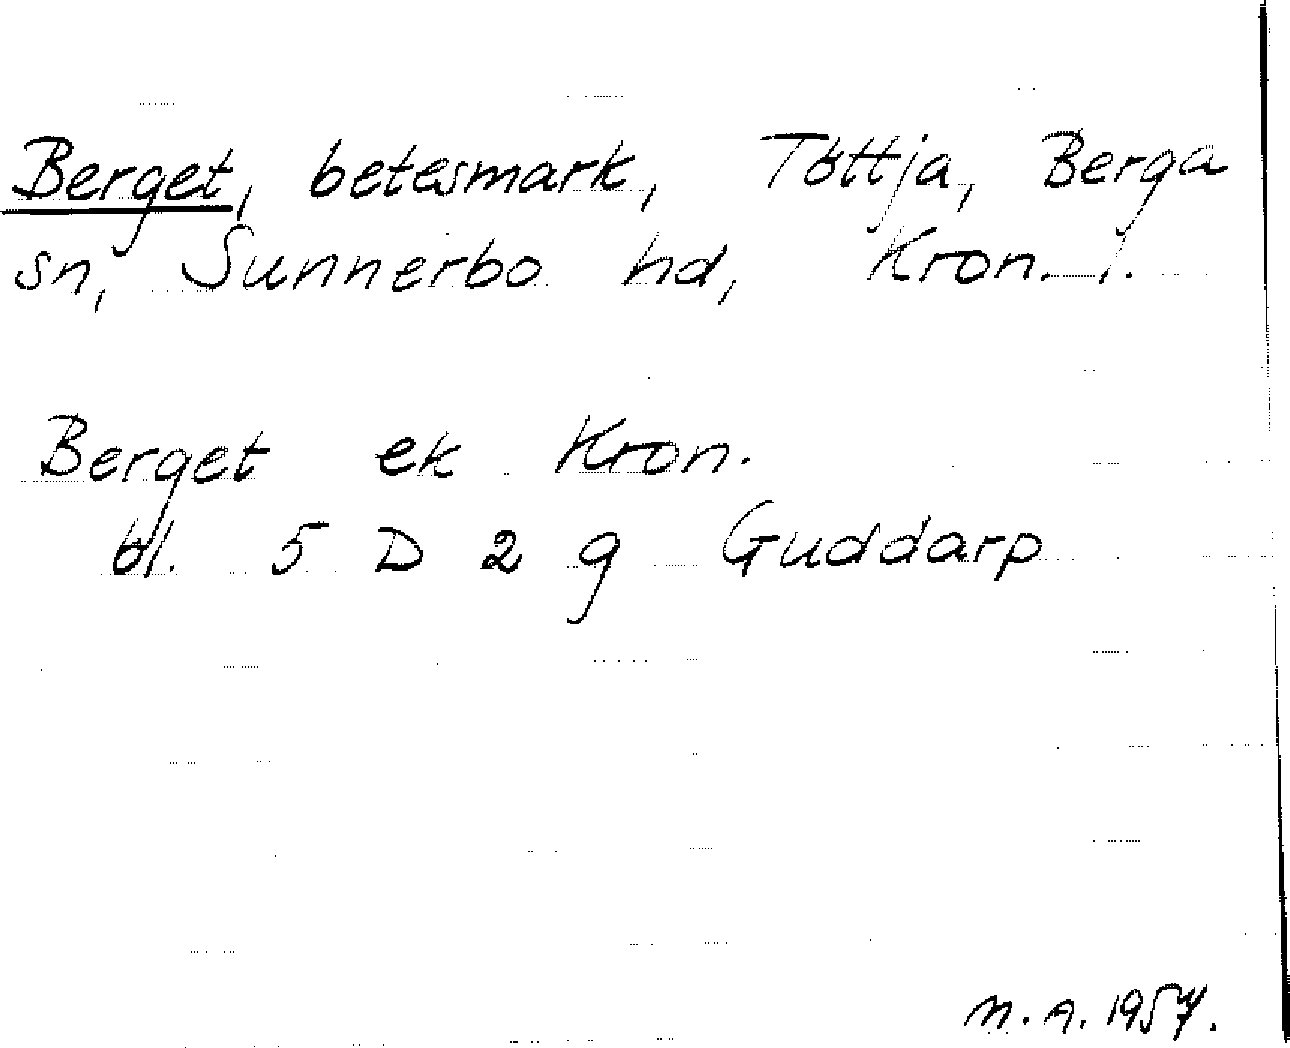 Berget, betesmark, Töttja, Berga
sn, Sunnerbo hd, Kron. l.
Berget ek Kron.
bl. 5 D 2 g Guddarp
M. A. 1957.